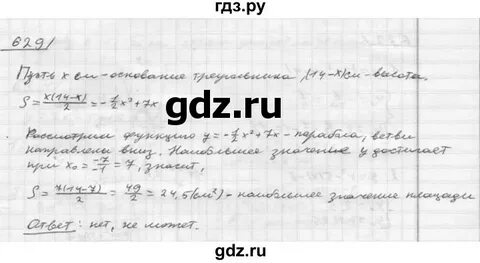 гдз.ру
629/
Пусть x см - основание треугольника, (14-x) см - высота.
S = x(14-x)/2 = -1/2 x² + 7x
gdz.ru
Рассмотрим функцию y = -1/2 x² + 7x - парабола, ветви
направлены вниз. Наибольшее значение y достигает
при x₀ = -7/-1 = 7, значит,
S = 7(14-7)/2 = 49/2 = 24,5 (см²) - наибольшее значение площади
Ответ: нет, не может.
gdz.ru